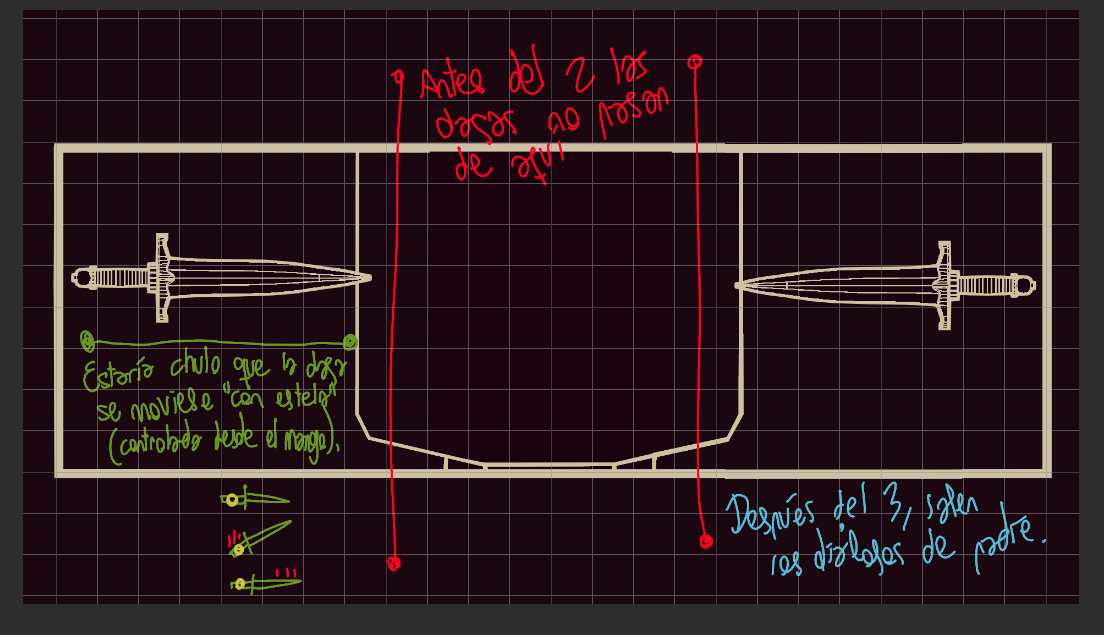 Antes del 2 las
dagas no pasan
de aquí
Estaría chulo que la daga
se moviese "con estela"
(controlada desde el mango).
Después del 3, salen
los diálogos de padre.